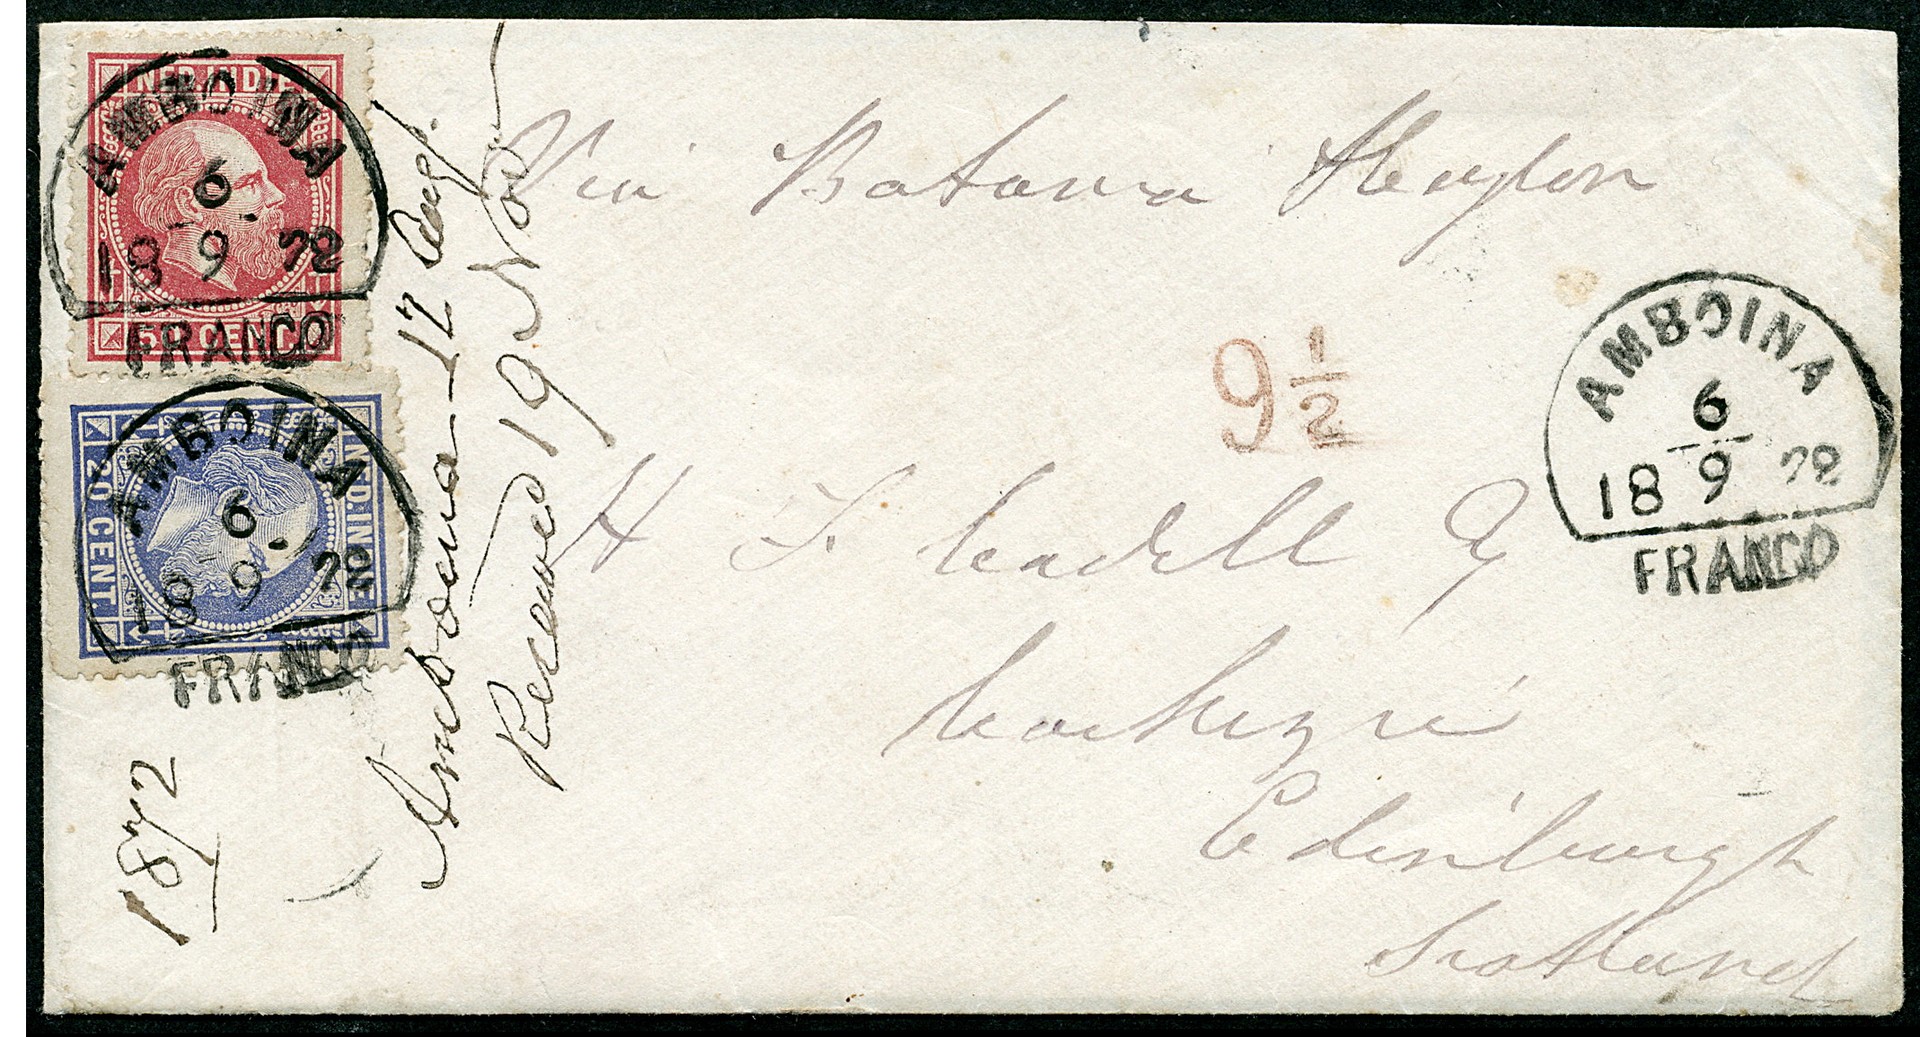 NED. INDIE
50 CENT
AMBOINA
6
18 9 72
FRANCO
NED. INDIE
20 CENT
AMBOINA
6
18 9 72
FRANCO
1872
Amboina 12 Aug.
Received 19 Nov
Via Batavia
9 1/2
AMBOINA
6
18 9 72
FRANCO
H F Cadell
Cockenzie
Edinburgh
Scotland